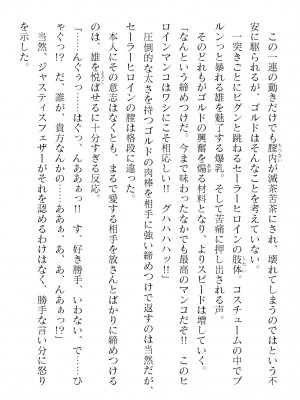 この一連の動きだけでも膣内が滅茶苦茶にされ、壊れてしまうのではという不
安に駆られるが、ゴルドはそんなことを考えていない。
一突きごとにビグンと跳ねるセーラーヒロインの肢体。コスチュームの中でブ
ルンっと暴れる雄を魅了する爆乳。そして苦痛に押し出される声。
そのどれもがゴルドの興奮を煽る材料となり、よりスピードは増していく。
「なんという締めつけだ。今まで味わったなかでも最高のマンコだぞ!! このヒ
ロインマンコはワシにこそ相応しい!! グハハハハッ!!」
圧倒的な太さを持つゴルドの肉棒を相手に強い締めつけで返すのは当然だが、
セーラーヒロインの膣は格段に違った。
本人にその意志はなくとも、まるで愛する相手を放さんとばかりに締めつける
のは、雄を悦ばせるに十分すぎる反応。
「……んぐぅっ、はぐぅ、んああぁっ!! す、好き勝手、いわない、で……ひ
ゃぐぅっ!? だ、誰が、貴方なんかの……あぁぁ、あ、あ、んあぁっ!?」
当然、ジャスティスフェザーがそれを認めるわけはなく、勝手な言い分に怒り
を示した。